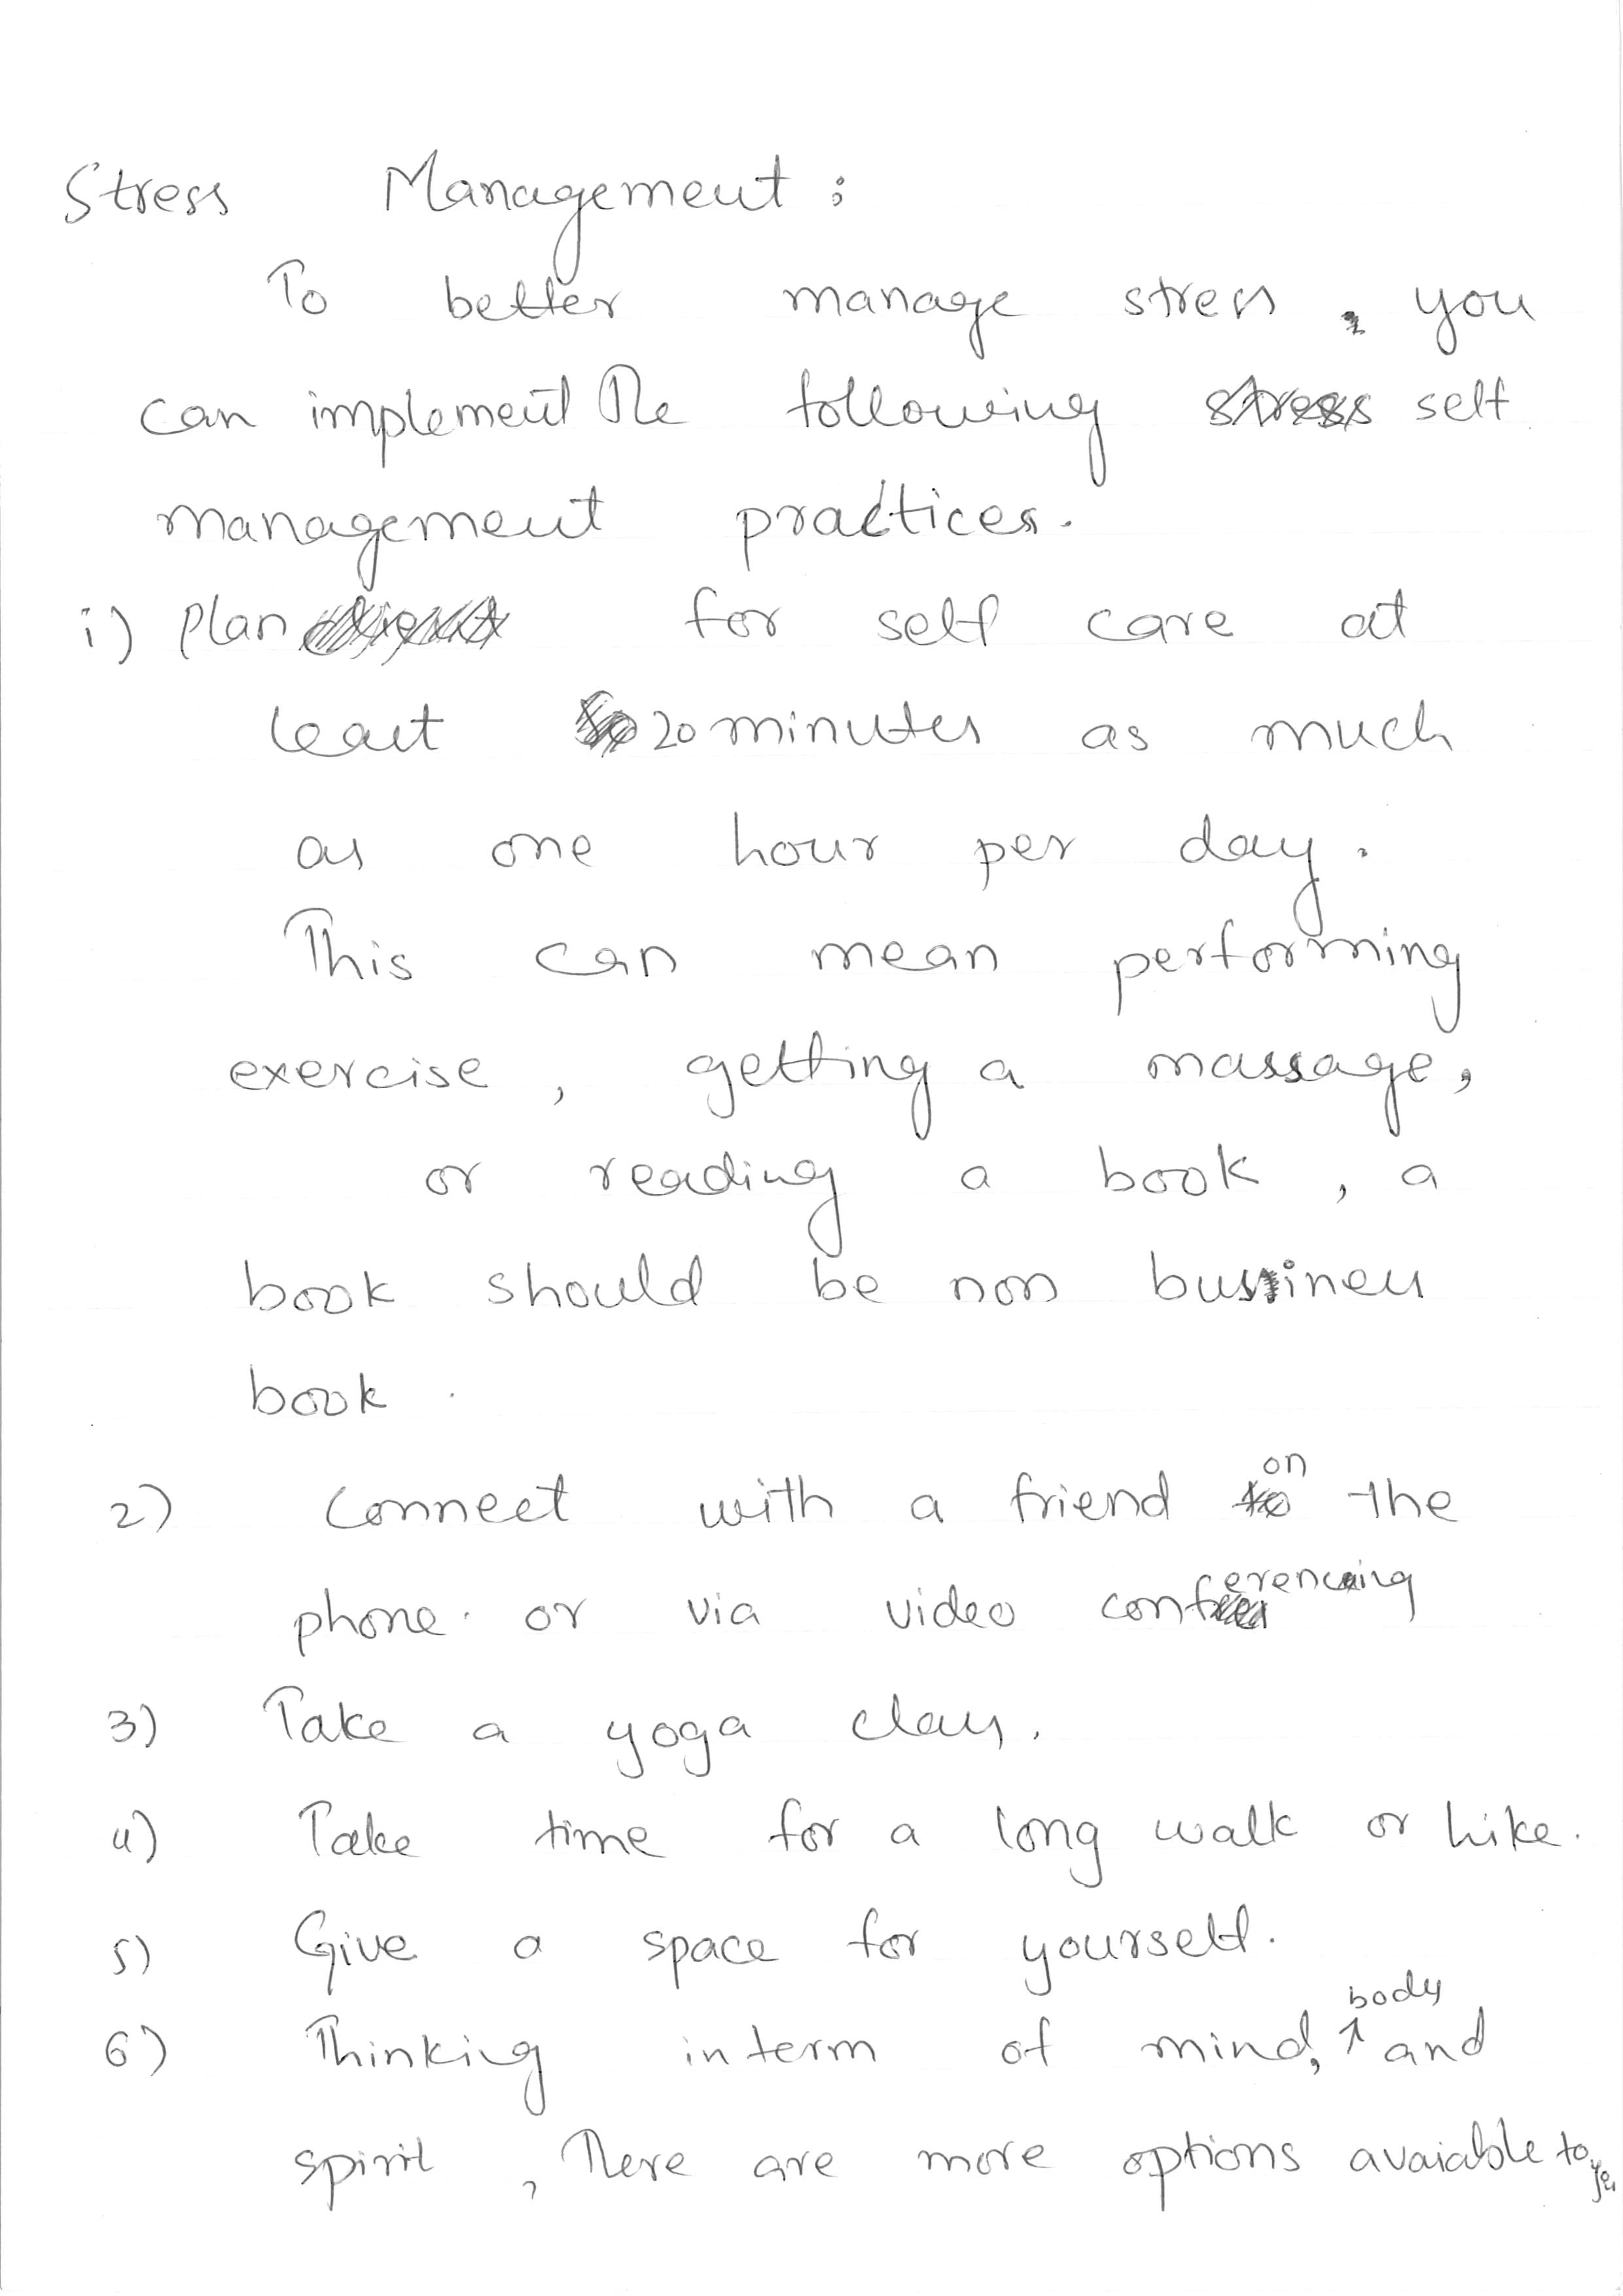 Stress Management :
To better manage stress, you
can implement The following stress self
management practices.
i) Plan for self care at
least 20 minutes as much
as one hour per day.
This can mean performing
exercise, getting a massage,
or reading a book, a
book should be non bussiness
book.
2) Connect with a friend to on the
phone. or via video conferencing
3) Take a yoga class.
4) Take time for a long walk or hike.
5) Give a space for yourself.
6) Thinking interm of mind, body and
spirit, There are more options avaiable to you